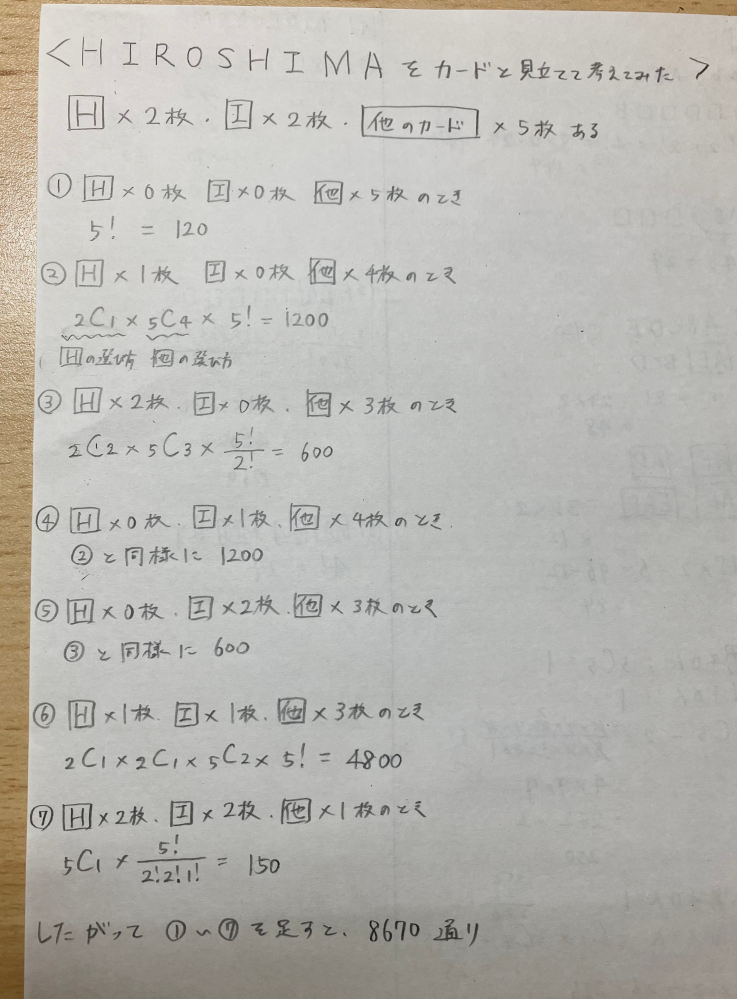 <HIROSHIMAをカードと見立てて考えてみた>
H×2枚.I×2枚.他のカード×5枚ある
① H×0枚 I×0枚 他×5枚のとき
5! = 120
② H×1枚 I×0枚 他×4枚のとき
2C1×5C4×5!=1200
Hの選び方 他の選び方
③ H×2枚.I×0枚.他×3枚のとき
2C2×5C3×5!/2!=600
④ H×0枚.I×1枚.他×4枚のとき.
②と同様に1200
⑤ H×0枚.I×2枚.他×3枚のとき
③と同様に600
⑥ H×1枚.I×1枚.他×3枚のとき
2C1×2C1×5C2×5!=4800
⑦ H×2枚.I×2枚.他×1枚のとき
5C1×5!/2!2!1!=150
したがって①〜⑦を足すと、8670通り